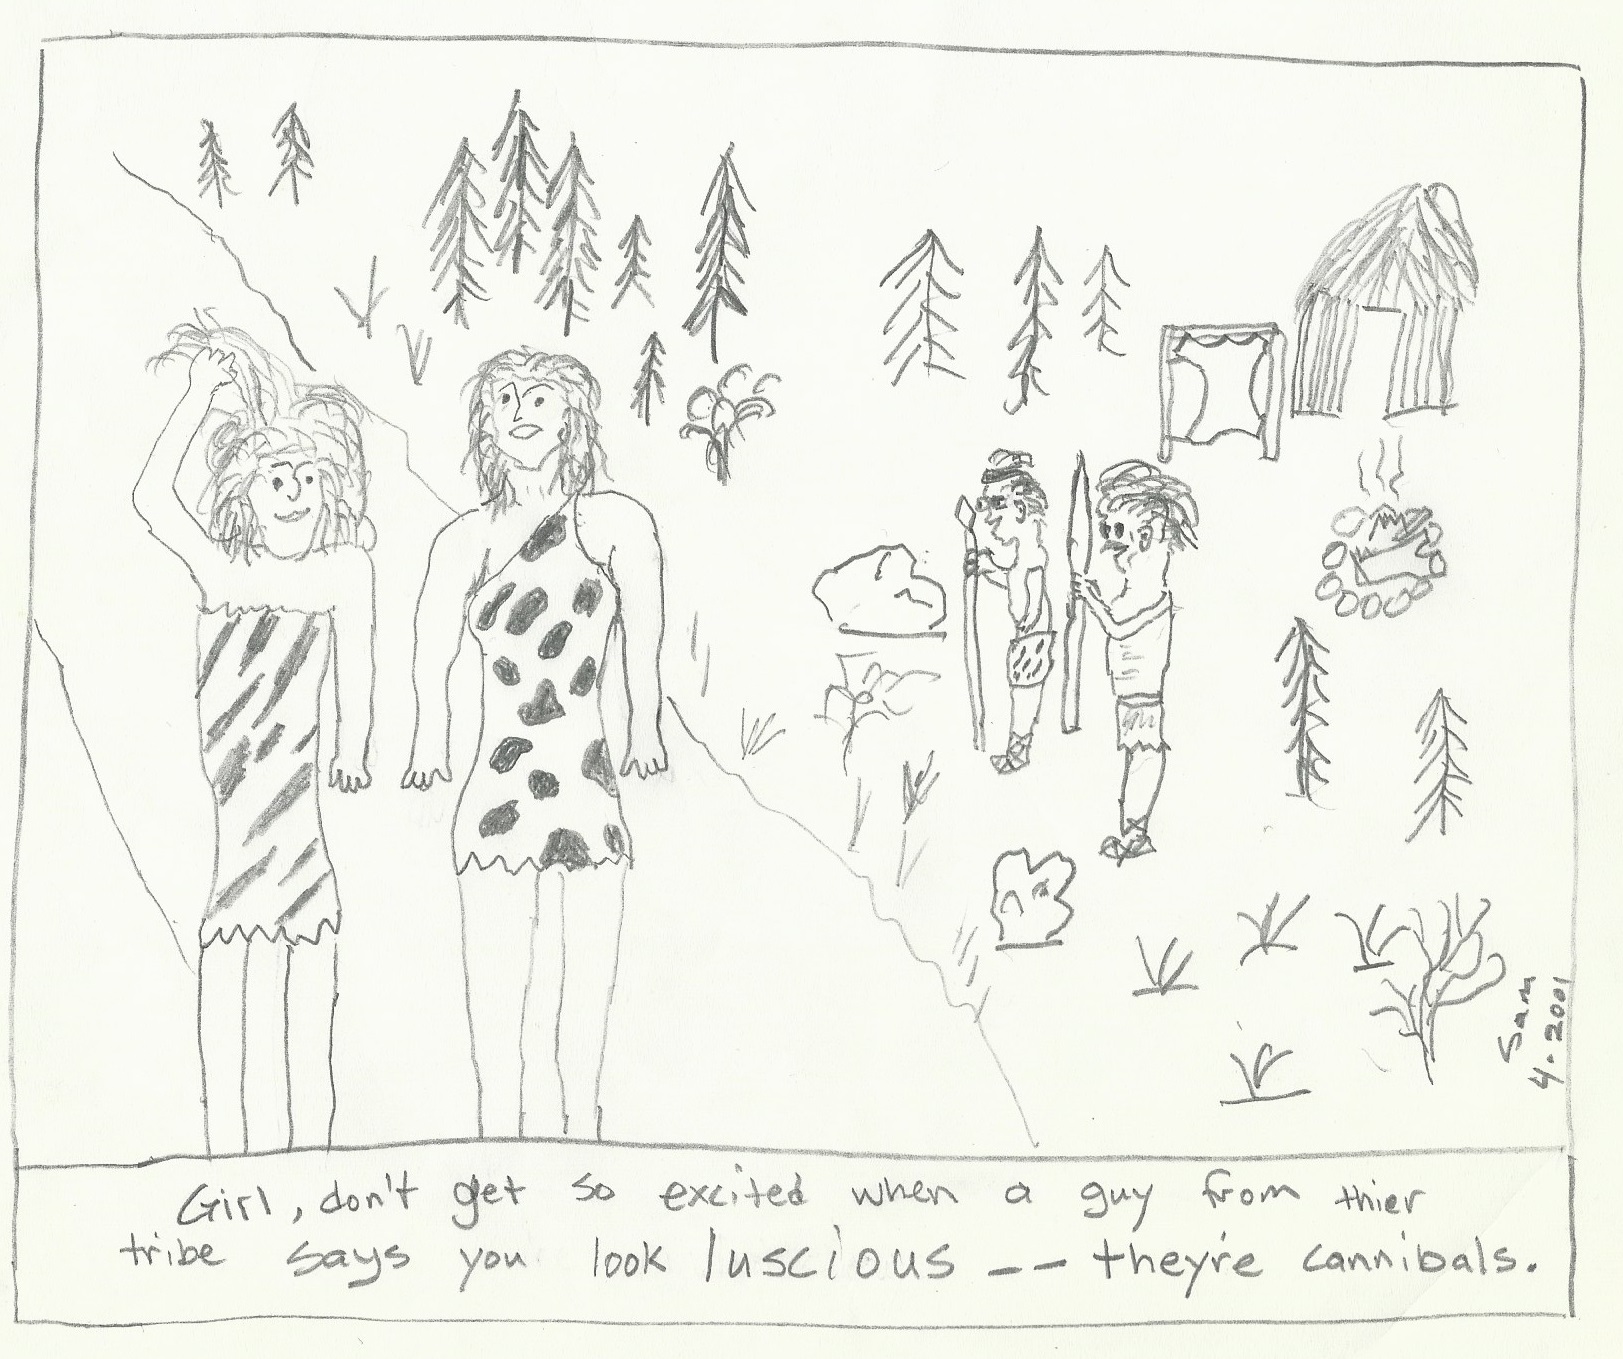 Sam
4.2001
Girl, don't get so excited when a guy from thier
tribe says you look luscious -- they're cannibals.